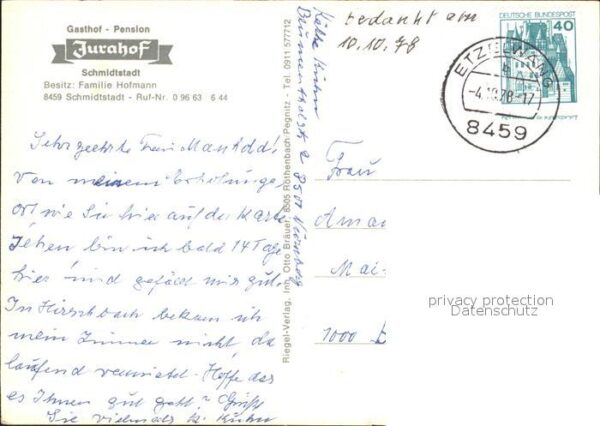 Gasthof - Pension
Jurahof
Schmidtstadt
Besitz: Familie Hofmann
8459 Schmidtstadt - Ruf-Nr. 0 96 63 6 44
Sehr geehrte Frau
Von meinem Erholungs-
ort wie Sie hier auf der Karte
sehen bin ich bald 14 Tage
hier und gefällt mir gut.
In Hirschbach bekam ich
mein Zimmer nicht da
laufend vermietet. Hoffe das
es Ihnen gut geht? Grüßt
Sie vielmals K. Kühn
Riegel-Verlag, Inh. Otto Bräuer, 8505 Röthenbach Pegnitz - Tel. 0911 577712
Käthe Kühn
8501 Nürnberg
bedankt am
10.10.78
DEUTSCHE BUNDESPOST
40
ETZELWANG
b
-4.10.78-17
8459
Frau
Mai-
1000
privacy protection
Datenschutz